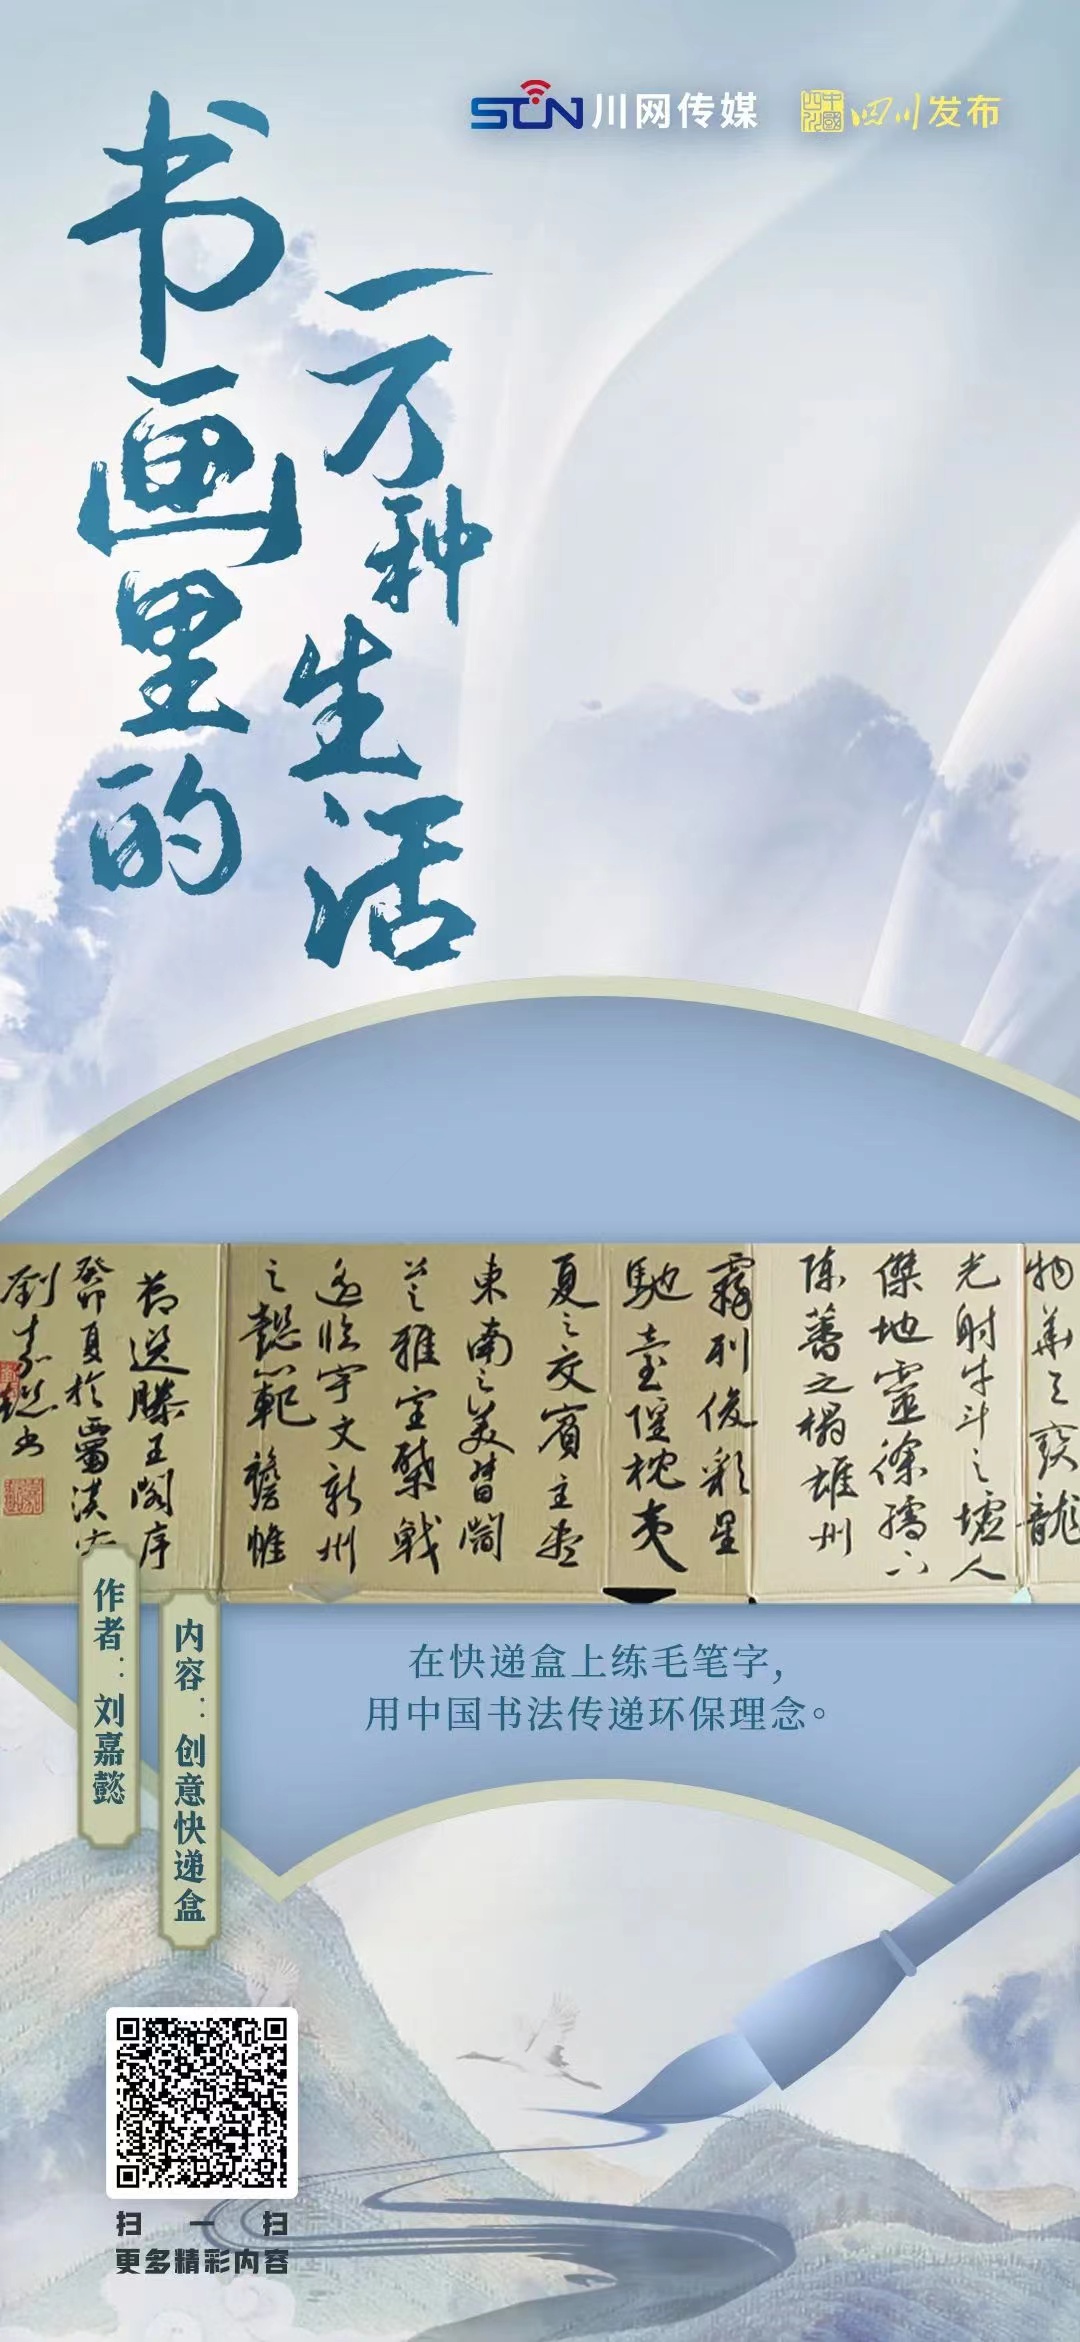 SCN 川网传媒
中國四川 四川发布
书画里的
一万种生活
物华天宝龍
光射牛斗之墟人
傑地靈徐孺下
陈蕃之榻雄州
霧列俊彩星
馳臺隍枕夷
夏之交賓主盡
東南之美都督閻
公之雅望棨戟
遥临宇文新州
之懿範襜帷
节选滕王阁序
癸卯夏於蜀漢
劉嘉懿书
在快递盒上练毛笔字,
用中国书法传递环保理念。
作者:刘嘉懿
内容:创意快递盒
扫一扫
更多精彩内容